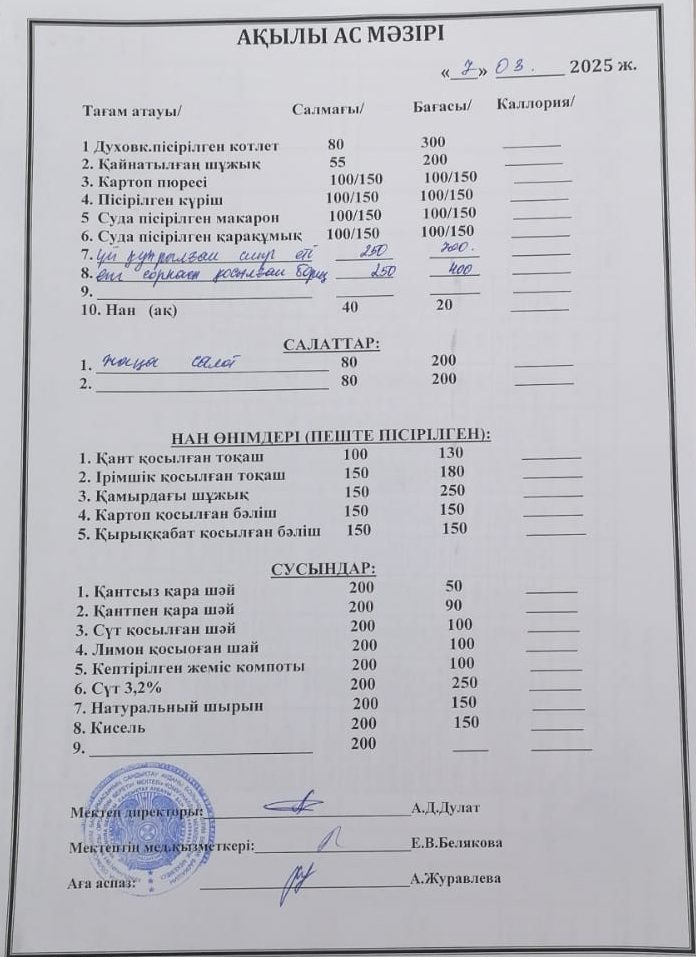 АҚЫЛЫ АС МӘЗІРІ
«7» 03. 2025 ж.
Тағам атауы/ Салмағы/ Бағасы/ Каллория/
1 Духовк.пісірілген котлет 80 300
2. Қайнатылғаң шұжық 55 200
3. Картоп пюресі 100/150 100/150
4. Пісірілген күріш 100/150 100/150
5 Суда пісірілген макарон 100/150 100/150
6. Суда пісірілген қарақұмық 100/150 100/150
7. үй сиыр еті 250 700.
8. ет қосылған борщ 250 400
9.
10. Нан (ақ) 40 20
САЛАТТАР:
1. салат 80 200
2. 80 200
НАН ӨНІМДЕРІ (ПЕШТЕ ПІСІРІЛГЕН):
1. Қант қосылған тоқаш 100 130
2. Ірімшік қосылған тоқаш 150 180
3. Қамырдағы шұжық 150 250
4. Картоп қосылған бәліш 150 150
5. Қырыққабат қосылған бәліш 150 150
СУСЫНДАР:
1. Қантсыз қара шәй 200 50
2. Қантпен қара шәй 200 90
3. Сүт қосылған шәй 200 100
4. Лимон қосыоған шай 200 100
5. Кептірілген жеміс компоты 200 100
6. Сүт 3,2% 200 250
7. Натуральный шырын 200 150
8. Кисель 200 150
9. 200
Мектеп директоры: А.Д.Дулат
Мектептің мед.қызметкері: Е.В.Белякова
Аға аспаз: А.Журавлева